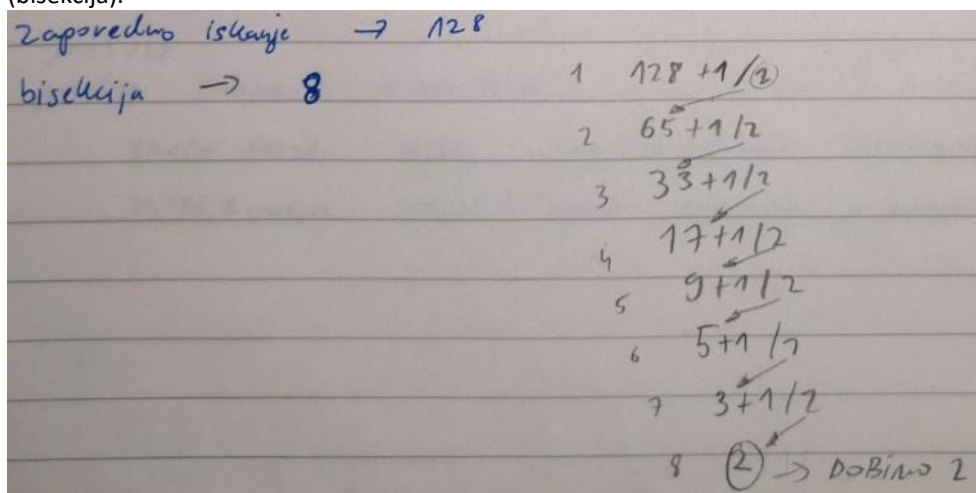 (bisekcija).
Zaporedno iskanje → 128
bisekcija → 8
1 128 +1/2
2 65+1/2
3 33+1/2
4 17+1/2
5 9+1/2
6 5+1/2
7 3+1/2
8 2 → DOBIMO 2